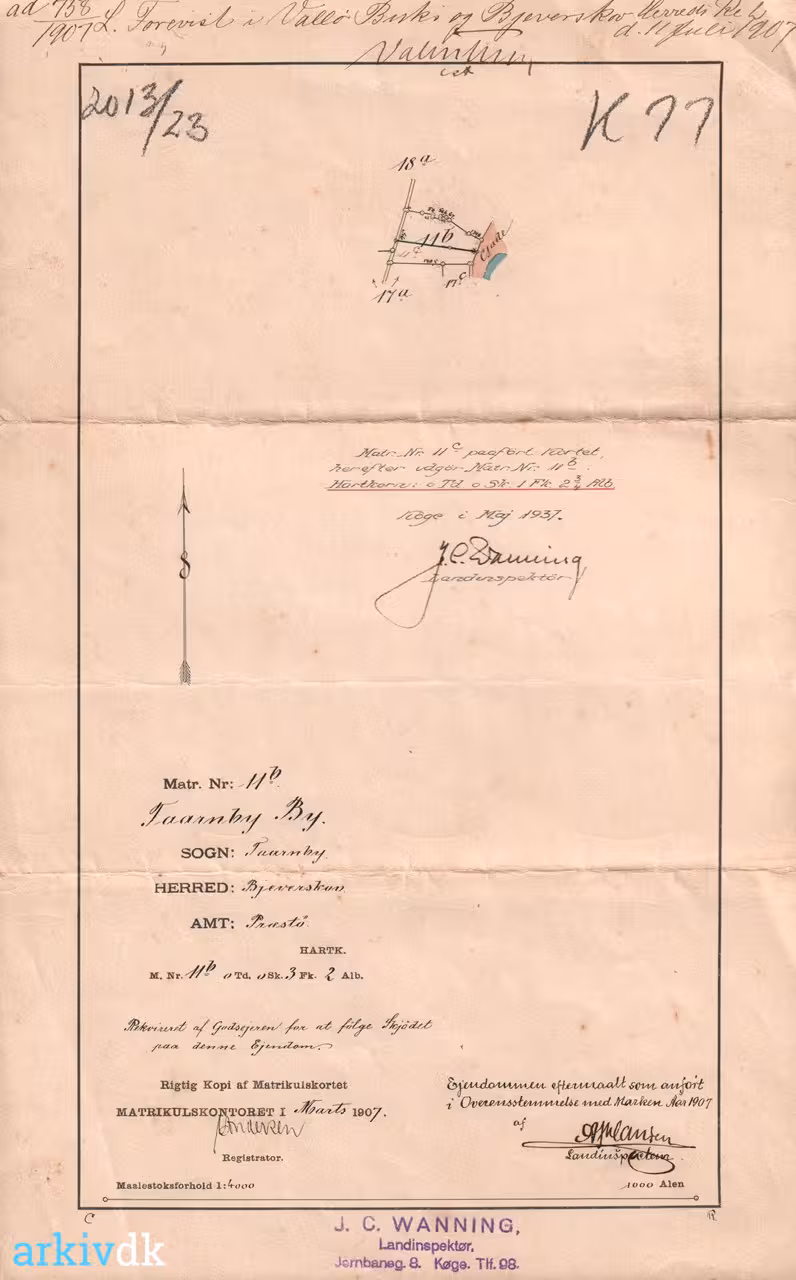 ad 758
1907 L. Forevist i Vallö Birks og Bjeverskov Herreds Ret
d. 11 Juli 1907
2013/23
K 77
18a
11b
11c
Gade
17c
17a
Matr. Nr. 11c paaført Kortet,
herefter udgør Matr. Nr. 11b
Hartkorn: 0 Td 0 Sk 1 Fk 2 3/4 Alb
Køge i Maj 1937.
J.C. Wanning
Landinspektør
Matr. Nr: 11b.
Taarnby By.
SOGN: Taarnby.
HERRED: Bjeverskov.
AMT: Præstö.
HARTK.
M. Nr. 11b 0 Td. 0 Sk. 3 Fk. 2 Alb.
Rekvireret af Godsejeren for at fölge Skjödet
paa denne Ejendom.
Rigtig Kopi af Matrikulskortet
MATRIKULSKONTORET I Marts 1907.
Andersen
Registrator.
Ejendommen eftermaalt som anfört
i Overensstemmelse med Marken Aar 1907
af
Landinspekteur.
Maalestoksforhold 1:4000
1000 Alen
C
R
J. C. WANNING,
Landinspektør,
Jernbaneg. 8. Køge. Tlf. 98.
arkivdk